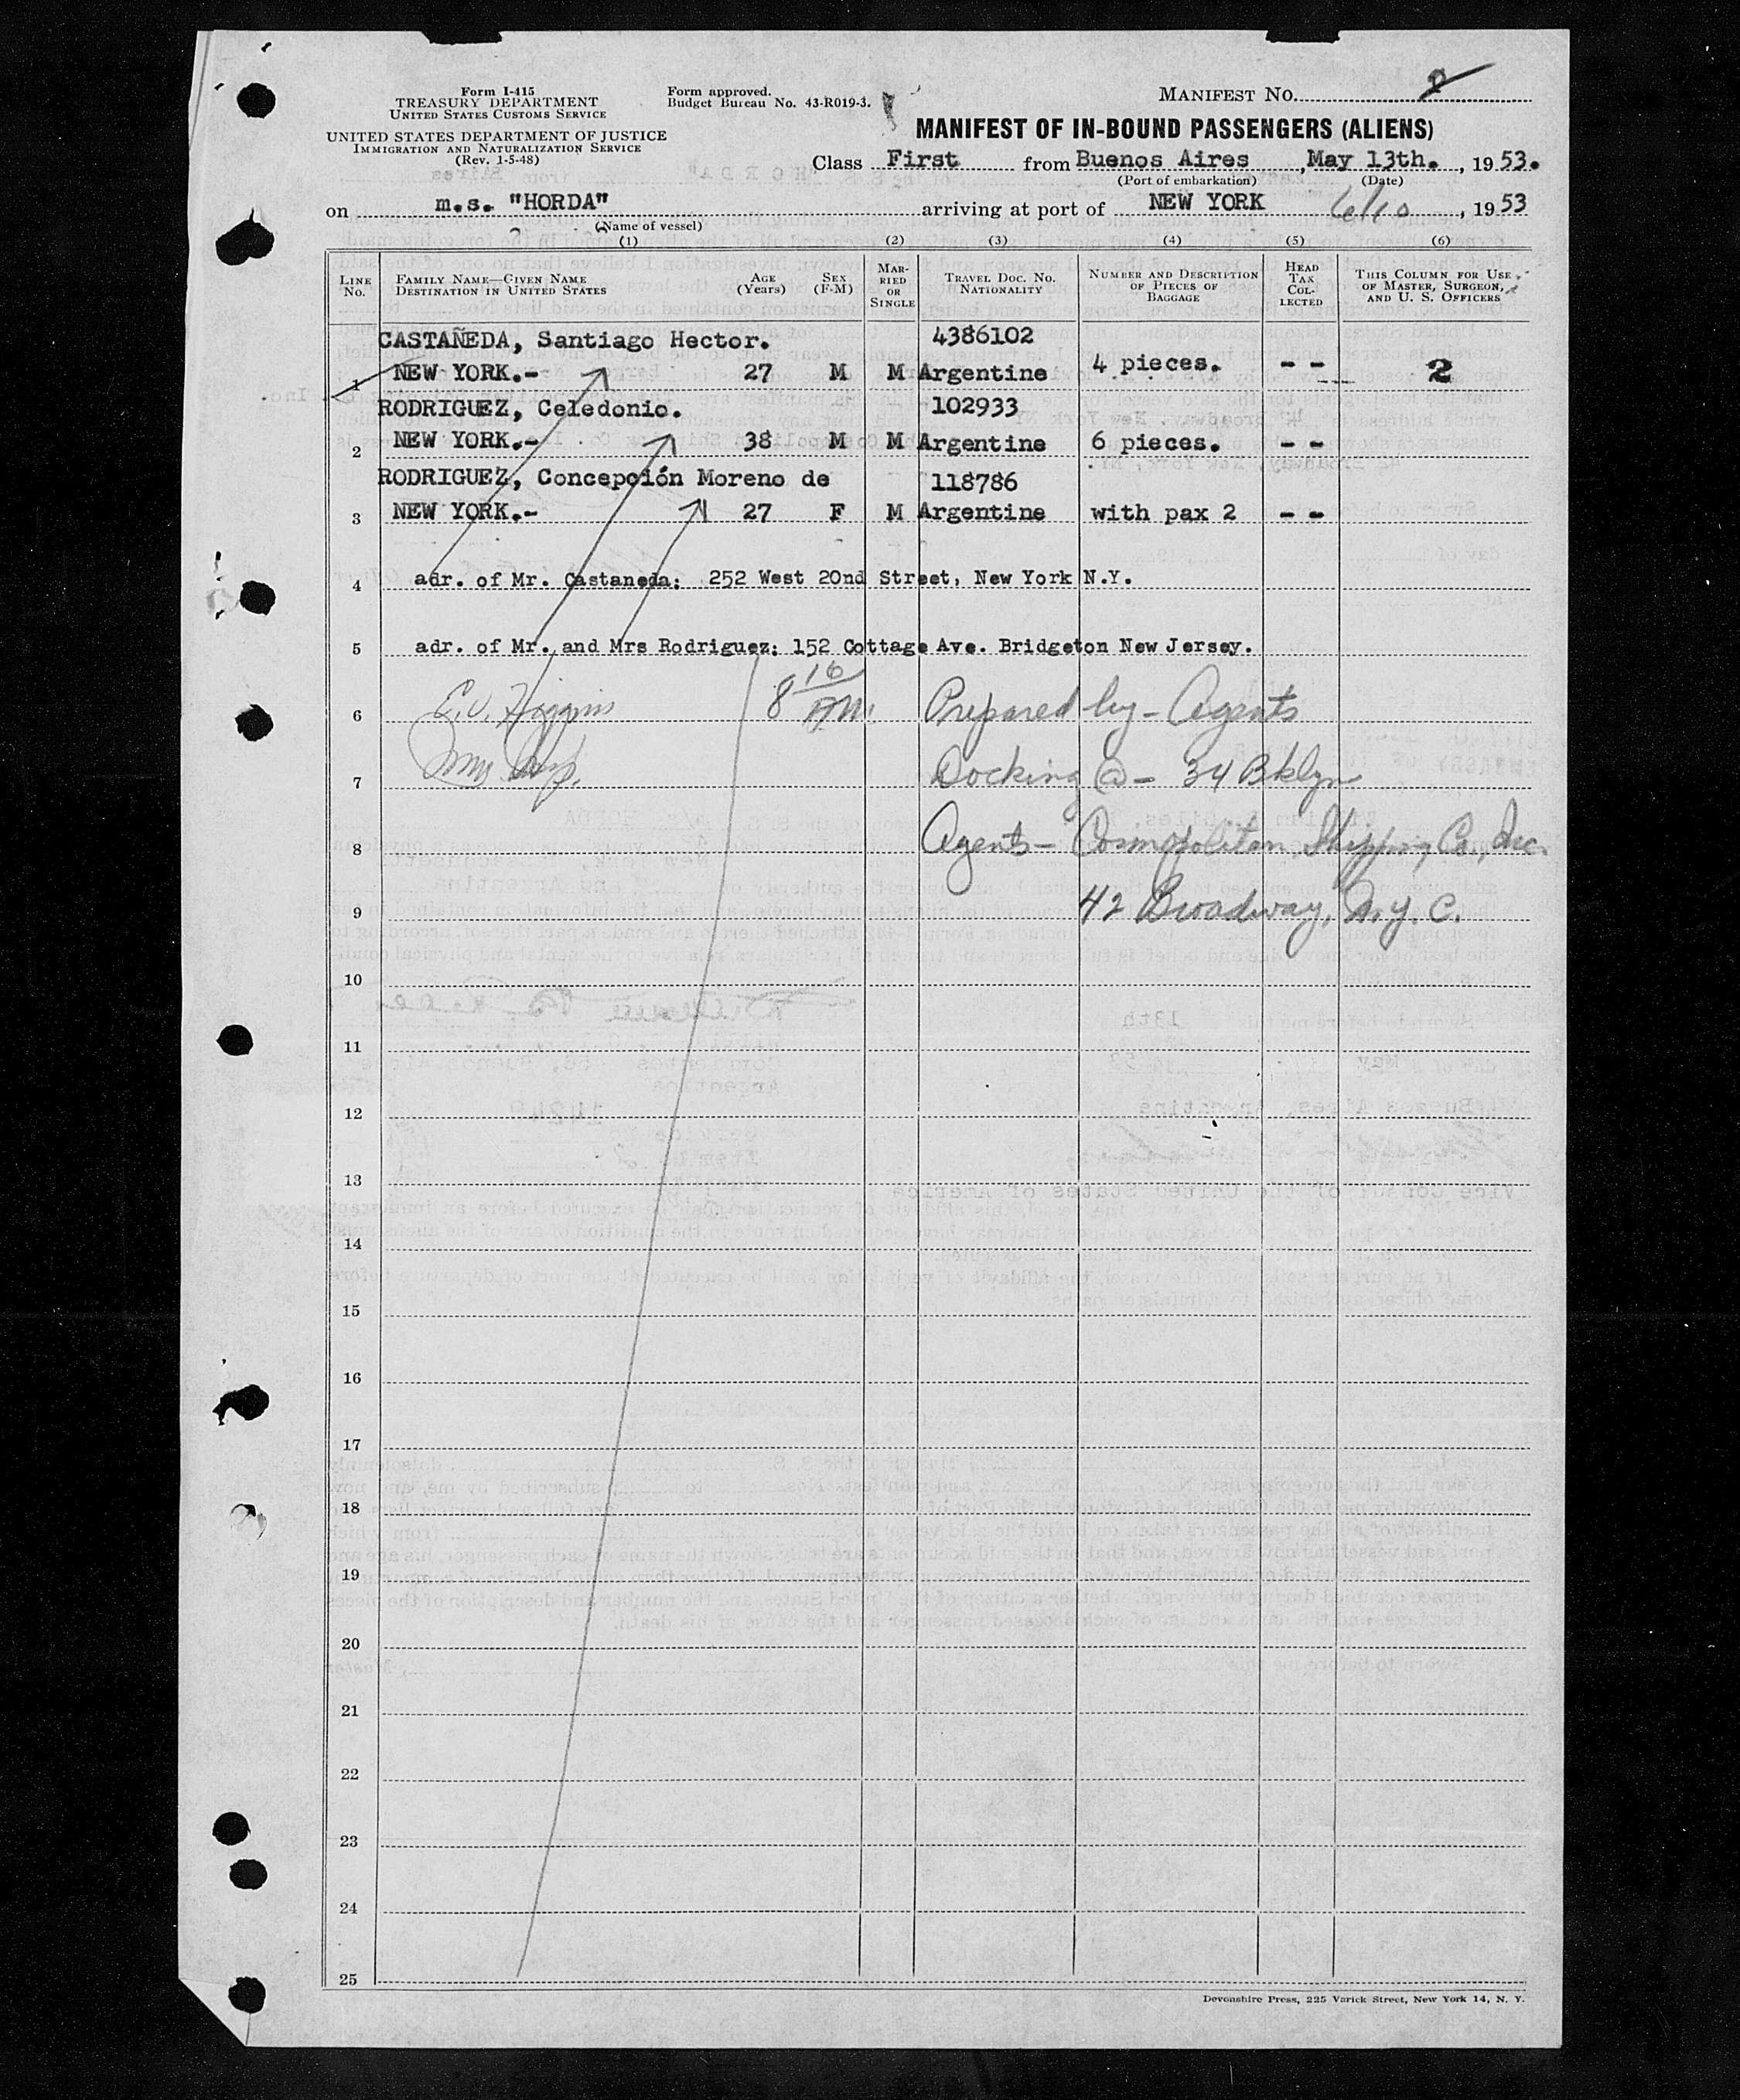 Form I-415
TREASURY DEPARTMENT
UNITED STATES CUSTOMS SERVICE
UNITED STATES DEPARTMENT OF JUSTICE
IMMIGRATION AND NATURALIZATION SERVICE
(Rev. 1-5-48)
Form approved.
Budget Bureau No. 43-R019-3.
MANIFEST NO.
MANIFEST OF IN-BOUND PASSENGERS (ALIENS)
Class First from Buenos Aires, May 13th., 1953.
(Port of embarkation) (Date)
on m.s. "HORDA" arriving at port of NEW YORK 6/10, 1953
(Name of vessel)
(1) (2) (3) (4) (5) (6)
LINE NO. FAMILY NAME—GIVEN NAME DESTINATION IN UNITED STATES AGE (Years) SEX (F-M) MARRIED OR SINGLE TRAVEL DOC. NO. NATIONALITY NUMBER AND DESCRIPTION OF PIECES OF BAGGAGE HEAD TAX COLLECTED THIS COLUMN FOR USE OF MASTER, SURGEON, AND U. S. OFFICERS
CASTAÑEDA, Santiago Hector. 4386102
1 NEW YORK.- 27 M M Argentine 4 pieces. - - 2
RODRIGUEZ, Celedonio. 102933
2 NEW YORK.- 38 M M Argentine 6 pieces. - -
RODRIGUEZ, Concepción Moreno de 118786
3 NEW YORK.- 27 F M Argentine with pax 2 - -
4 adr. of Mr. Castaneda: 252 West 20nd Street, New York N.Y.
5 adr. of Mr. and Mrs Rodriguez: 152 Cottage Ave. Bridgeton New Jersey.
6 E.V. Higgins 8 16 AM. Prepared by - Agents
7 Imm Insp. Docking @ - 34 Bklyn
8 Agents - Cosmopolitan Shipping Co., Inc.
9 42 Broadway, N.Y.C.
10
11
12
13
14
15
16
17
18
19
20
21
22
23
24
25
Devonshire Press, 225 Varick Street, New York 14, N. Y.